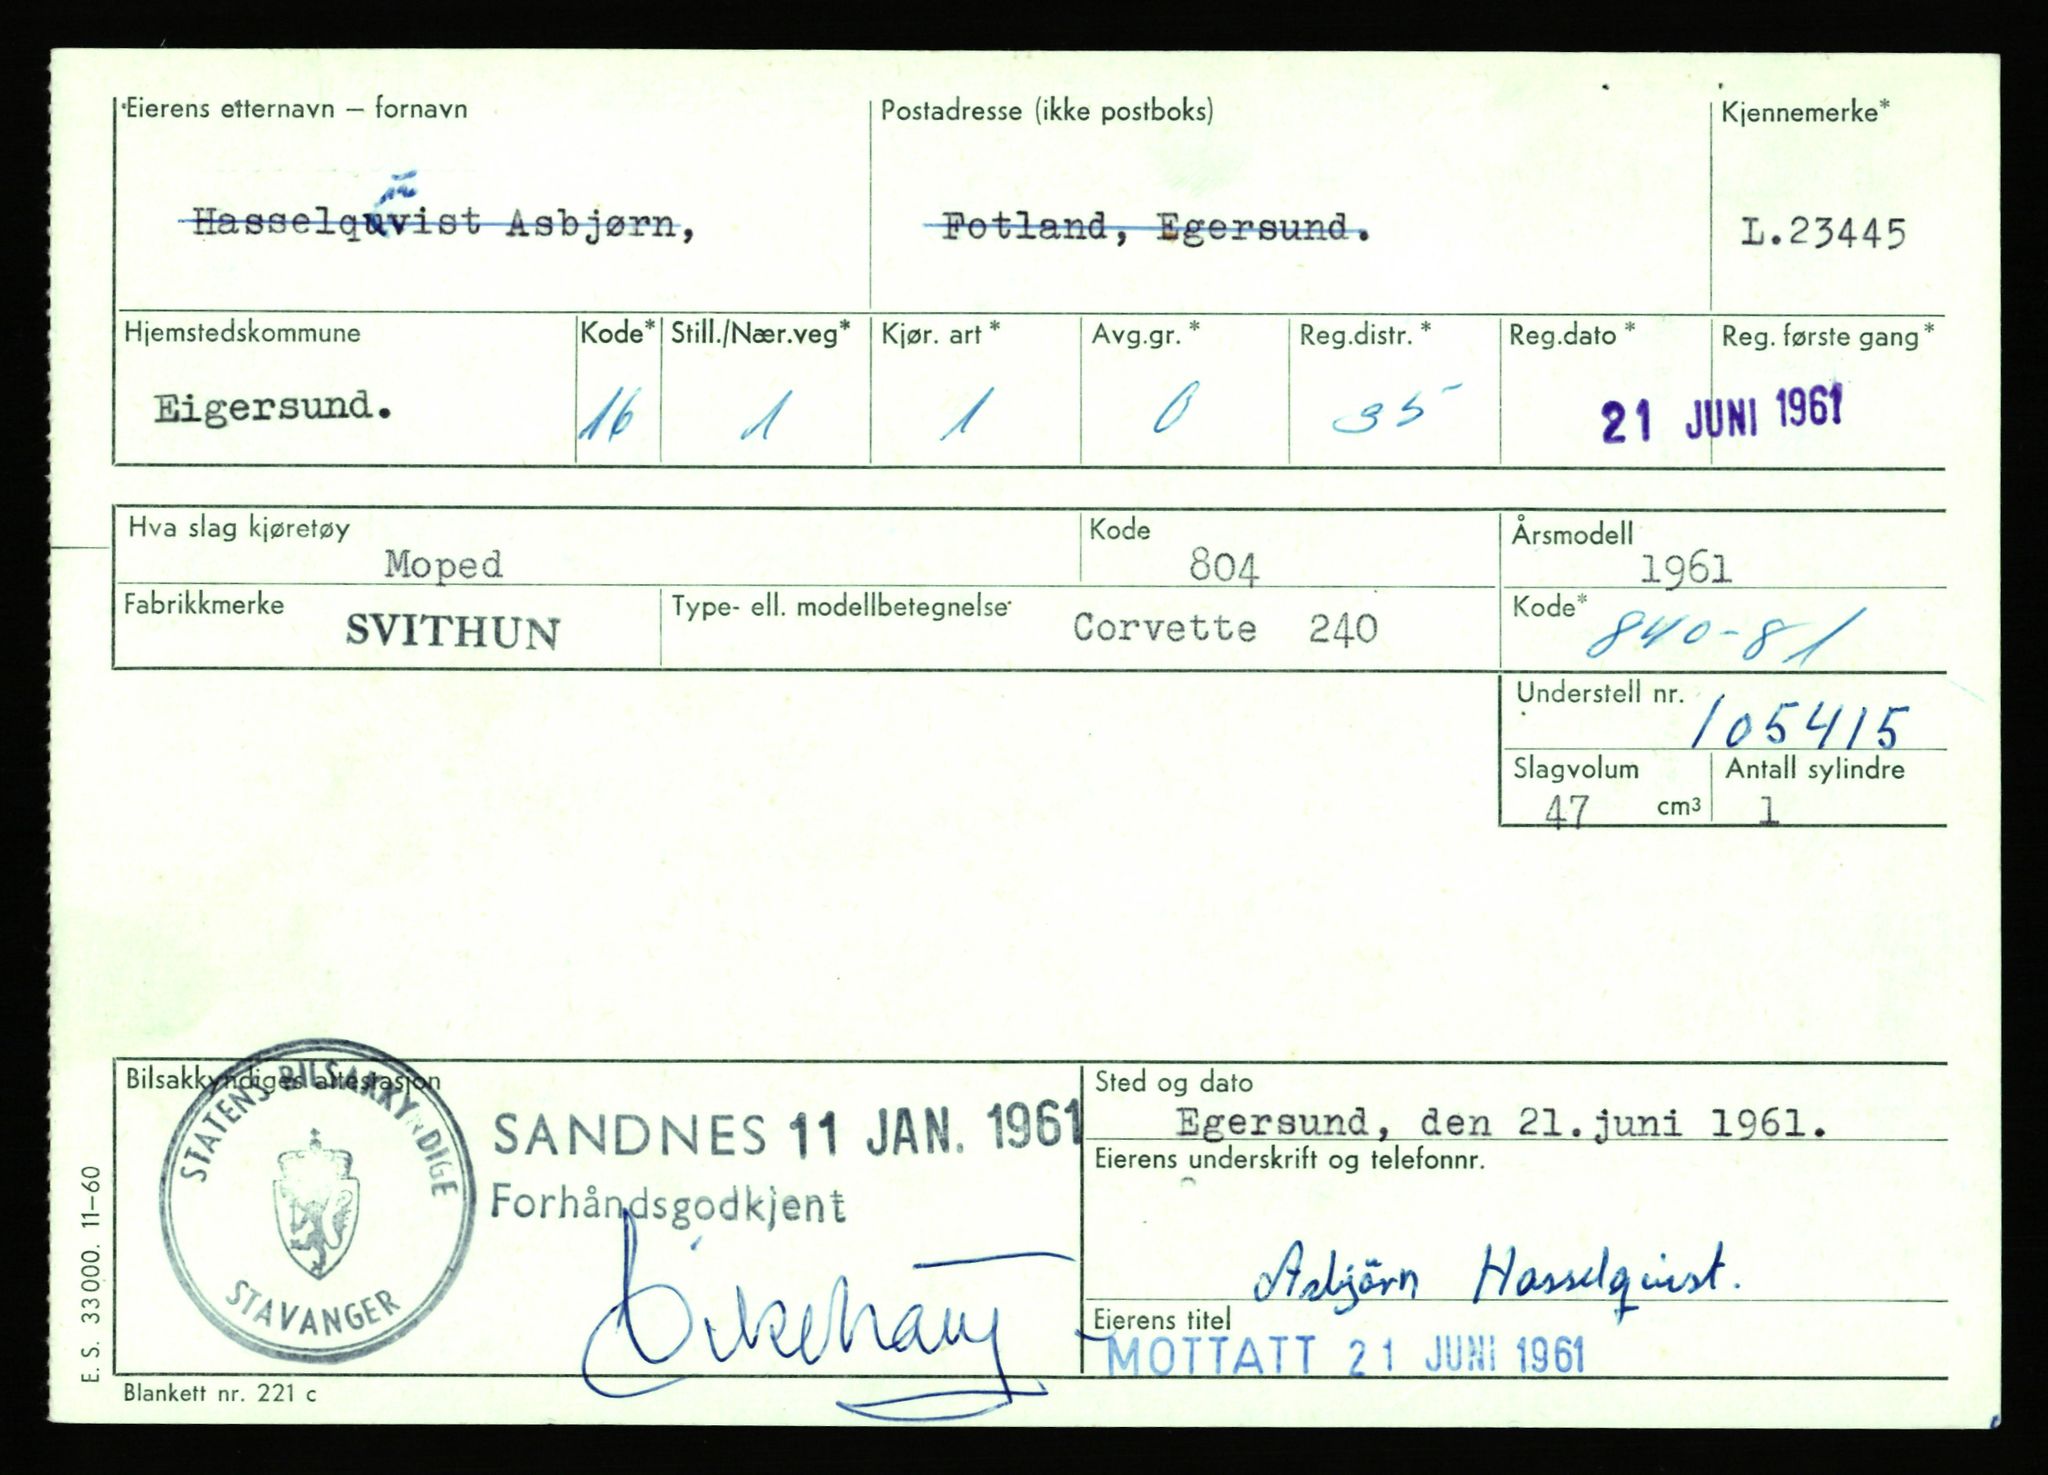 Eierens etternavn – fornavn
Postadresse (ikke postboks)
Kjennemerke*
Hasselquvist Asbjørn,
Fotland, Egersund.
L.23445
Hjemstedskommune
Kode*
Still./Nær.veg*
Kjør. art*
Avg.gr.*
Reg.distr.*
Reg.dato*
Reg. første gang*
Eigersund.
16
1
1
0
35
21 JUNI 1961
Hva slag kjøretøy
Moped
Kode
804
Årsmodell
1961
Fabrikkmerke
SVITHUN
Type- ell. modellbetegnelse
Corvette 240
Kode*
840-81
Understell nr.
105415
Slagvolum
47 cm³
Antall sylindre
1
Bilsakkyndiges attestasjon
STATENS BILSAKKYNDIGE
STAVANGER
SANDNES 11 JAN. 1961
Forhåndsgodkjent
Sted og dato
Egersund, den 21.juni 1961.
Eierens underskrift og telefonnr.
Asbjörn Hasselquist.
Eierens titel
MOTTATT 21 JUNI 1961
E. S. 33000. 11–60
Blankett nr. 221 c